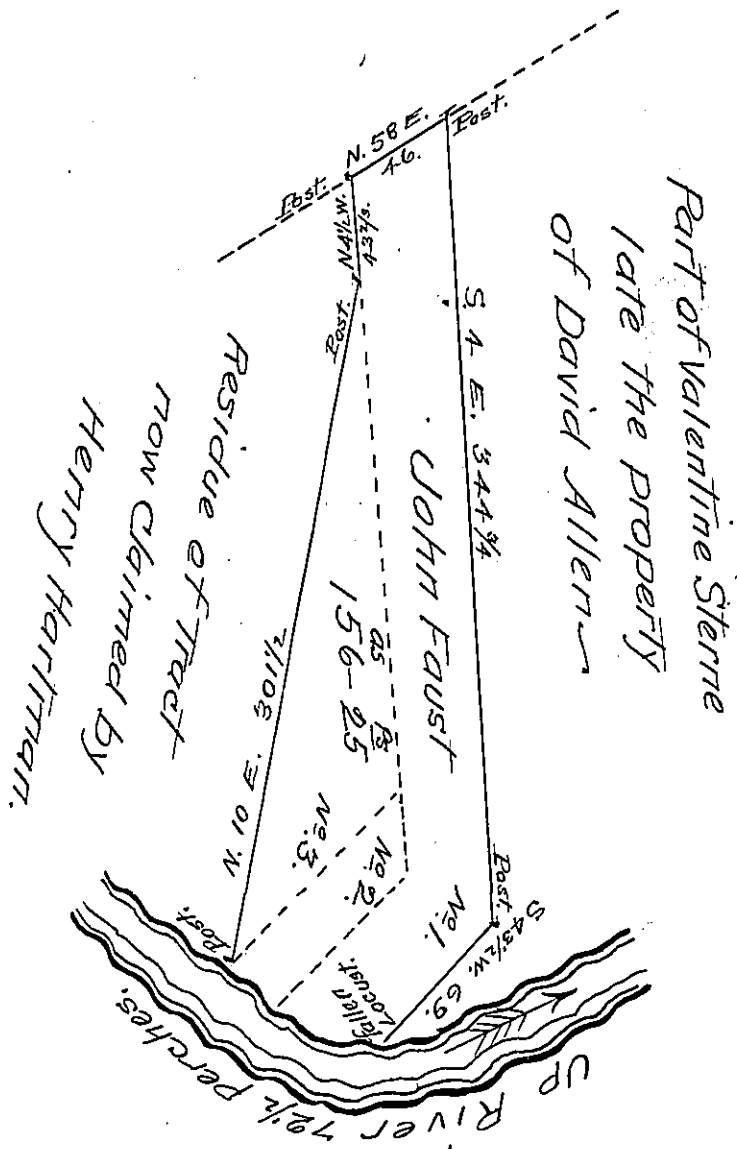 Part of Valentine Sterne
late the property
of David Allen
Post.
N. 58 E.
46.
Post.
N 4 1/2 W.
43 2/3.
Post.
S. 4 E. 344 3/4
John Faust
as ps
156-25
N. 10 E. 301 1/2
Residue of Tract
now claimed by
Henry Hartman.
No. 3.
No. 2.
No. 1.
Post.
S 43 1/2 W. 69.
Fallen
Locust.
Post.
UP River 72 1/2 perches.